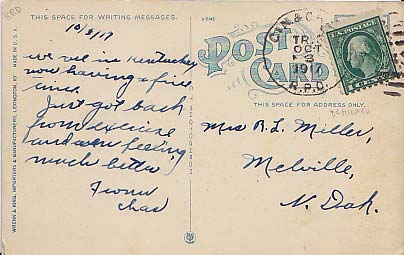 RPO
THIS SPACE FOR WRITING MESSAGES.
10/3/17
we are in Kentucky
now having a fine
time.
Just got back
from exercise
and am feeling
much better
From
Chas
WHITE & KING, IMPORTERS & MANUFACTURERS, LEXINGTON, KY. MADE IN U.S.A.
POST
CARD
THIS SPACE FOR ADDRESS ONLY.
CIN & CH
TR
OCT
3
1917
R.P.O.
U.S. POSTAGE
Mrs R. L. Miller,
Melville,
N. Dak.